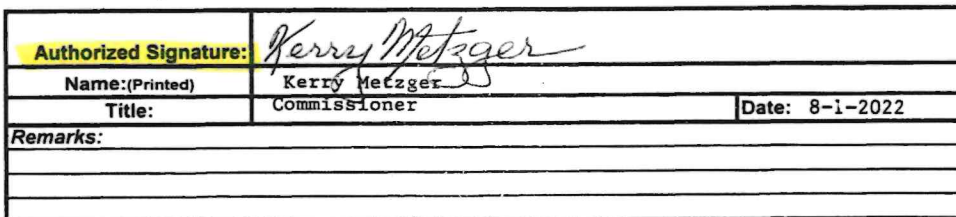 Authorized Signature: Kerry Metzger
Name:(Printed) Kerry Metzger
Title: Commissioner Date: 8-1-2022
Remarks: